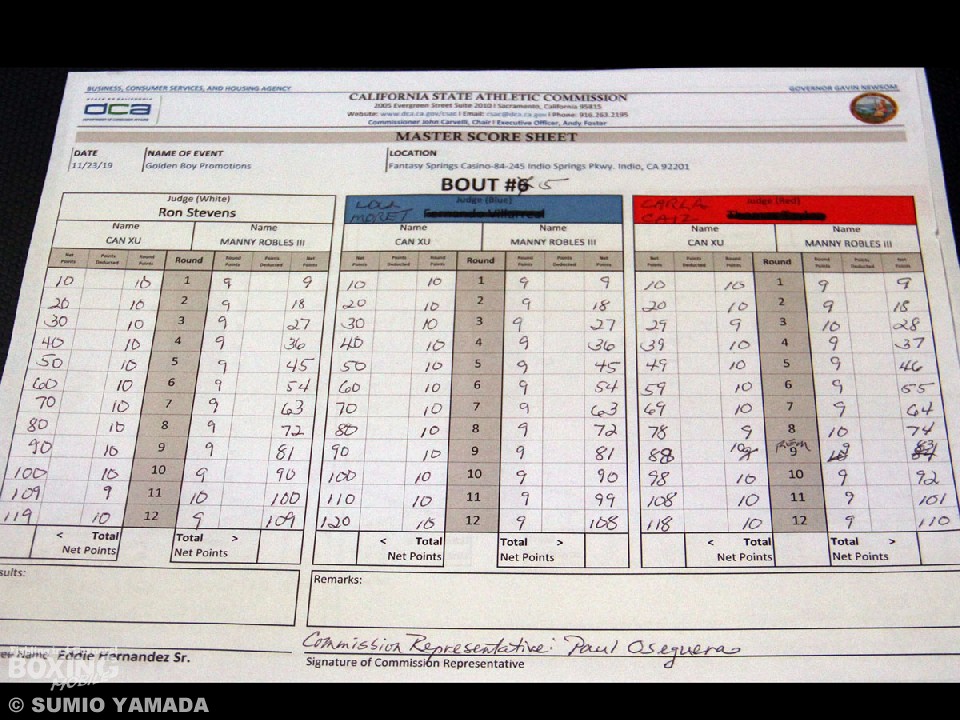 BUSINESS, CONSUMER SERVICES, AND HOUSING AGENCY
GOVERNOR GAVIN NEWSOM
STATE OF CALIFORNIA
dca
DEPARTMENT OF CONSUMER AFFAIRS
CALIFORNIA STATE ATHLETIC COMMISSION
2005 Evergreen Street Suite 2010 | Sacramento, California 95815
Website: www.dca.ca.gov/csac | Email: csac@dca.ca.gov | Phone: 916.263.2195
Commissioner John Carvelli, Chair | Executive Officer, Andy Foster
MASTER SCORE SHEET
DATE NAME OF EVENT LOCATION
11/23/19 Golden Boy Promotions Fantasy Springs Casino-84-245 Indio Springs Pkwy. Indio, CA 92201
BOUT #6 5
Judge (White) Judge (Blue) Judge (Red)
Ron Stevens LOLA MORET Fernando Villarreal CARLA CAIZ
Name Name Name Name Name Name
CAN XU MANNY ROBLES III CAN XU MANNY ROBLES III CAN XU MANNY ROBLES III
Net Points Points Deducted Round Points Round Round Points Points Deducted Net Points Net Points Points Deducted Round Points Round Round Points Points Deducted Net Points Net Points Points Deducted Round Points Round Round Points Points Deducted Net Points
10 10 1 9 9 10 10 1 9 9 10 10 1 9 9
20 10 2 9 18 20 10 2 9 18 20 10 2 9 18
30 10 3 9 27 30 10 3 9 27 29 9 3 10 28
40 10 4 9 36 40 10 4 9 36 39 10 4 9 37
50 10 5 9 45 50 10 5 9 45 49 10 5 9 46
60 10 6 9 54 60 10 6 9 54 59 10 6 9 55
70 10 7 9 63 70 10 7 9 63 69 10 7 9 64
80 10 8 9 72 80 10 8 9 72 78 9 8 10 74
90 10 9 9 81 90 10 9 9 81 88 10 9 9 83
100 10 10 9 90 100 10 10 9 90 98 10 10 9 92
109 9 11 10 100 110 10 11 9 99 108 10 11 9 101
119 10 12 9 109 120 10 12 9 108 118 10 12 9 110
< Total Net Points Total > Net Points < Total Net Points Total > Net Points < Total Net Points Total > Net Points
sults:
Remarks:
Eddie Hernandez Sr.
Commission Representative: Paul Oseguera
Signature of Commission Representative
BOXING
MOBILE
© SUMIO YAMADA